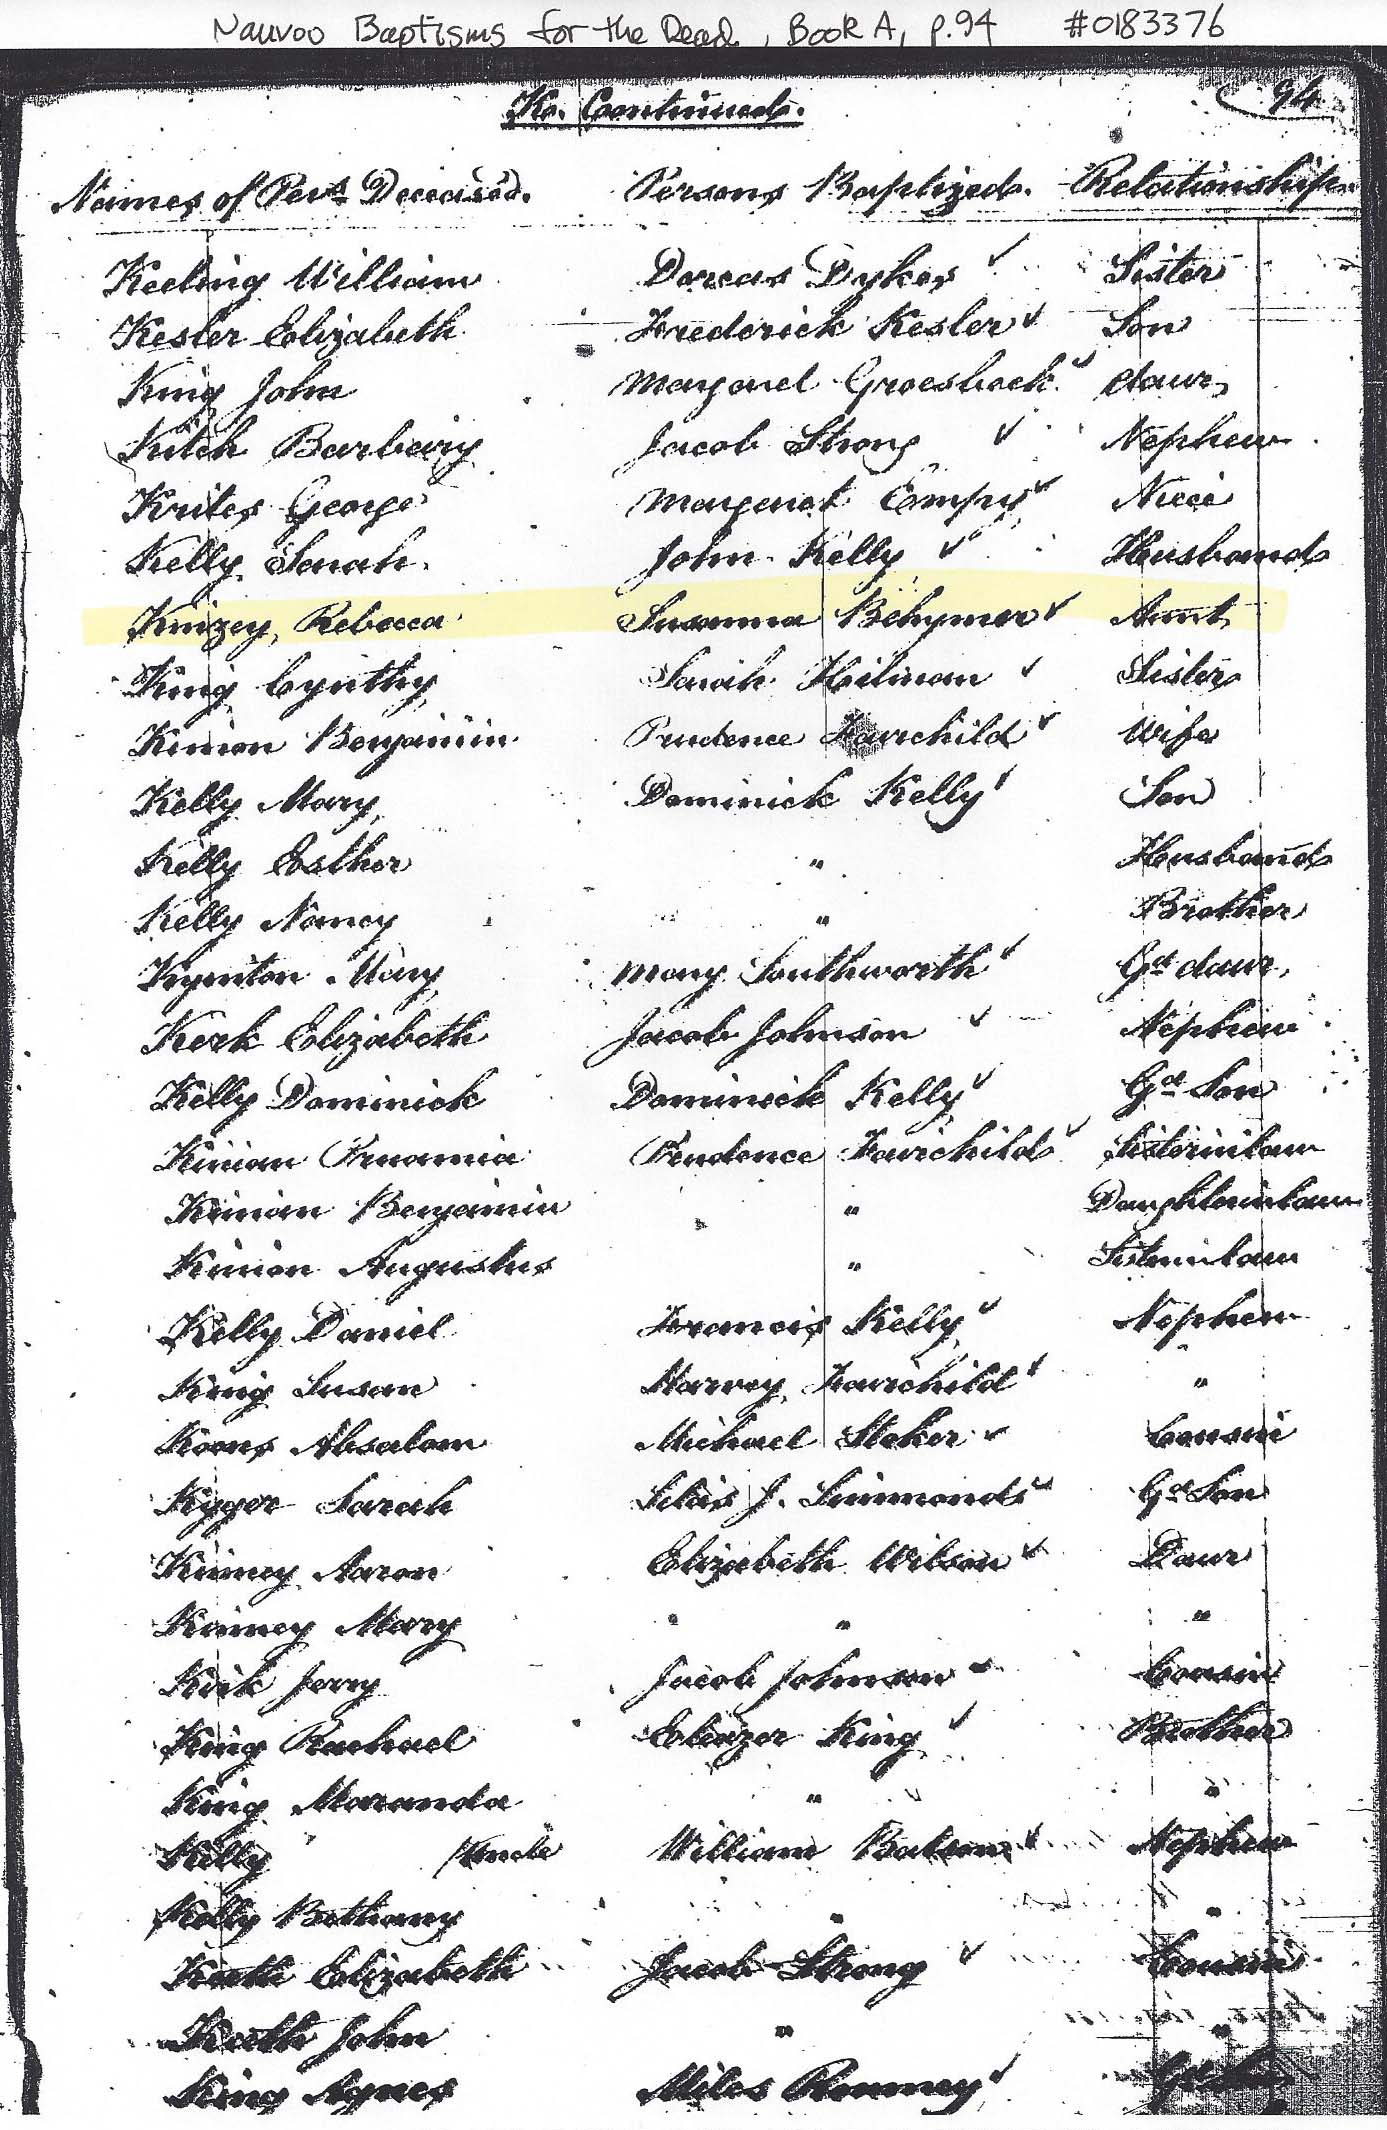 Nauvoo Baptisms for the Dead, Book A, p.94 #0183376
94
K. Continued.
Names of Pers. Deceased. Persons Baptized. Relationship
Keeling William Dorcas Dykes ✓ Sister
Kesler Elizabeth Frederick Kesler ✓ Son
King John Margaret Groesbeck ✓ daur,
Kitch Barbary Jacob Strong ✓ Nephew
Krites George Margaret Empy ✓ Niece
Kelly Sarah John Kelly ✓ Husband
Kinzey, Rebecca Susanna Behymer ✓ Aunt
King Cynthy Sarah Hilman ✓ Sister
Kinion Benjamin Prudence Fairchild ✓ Wife
Kelly Mary, Dominick Kelly ✓ Son
Kelly Esther " Husband
Kelly Nancy " Brother
Kyniton Mary Mary Southworth ✓ Gd daur,
Kerk Elizabeth Jacob Johnson ✓ Nephew
Kelly Dominick Dominick Kelly ✓ Gd Son
Kinian Prudence Fairchild ✓ Sisterinlaw
Kinian Benjamin " Daughterinlaw
Kinion Augustus " Sisterinlaw
Kelly Daniel Francis Kelly ✓ Nephew
King Susan Harvey Fairchild ✓ "
Koons Absalom Michael Stoker ✓ Cousin
Kyger Sarah Silas J. Simmonds ✓ Gd Son
Kinney Aaron Elizabeth Wilson ✓ Daur
Kinney Mary " "
Kirk Jerry Jacob Johnson ✓ Cousin
King Rachael Eleazer King ✓ Brother
King Maranda " "
Kelly Uncle William Batson ✓ Nephew
Kelly Bethany " "
Keith Elizabeth Jacob Strong ✓ Cousin
Keith John " "
King Agnes Miles Romney ✓